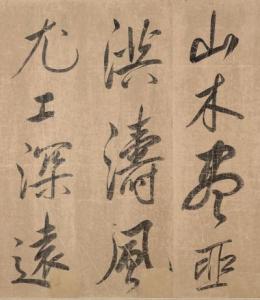 山木盡亞
洪濤風
尤工深遠